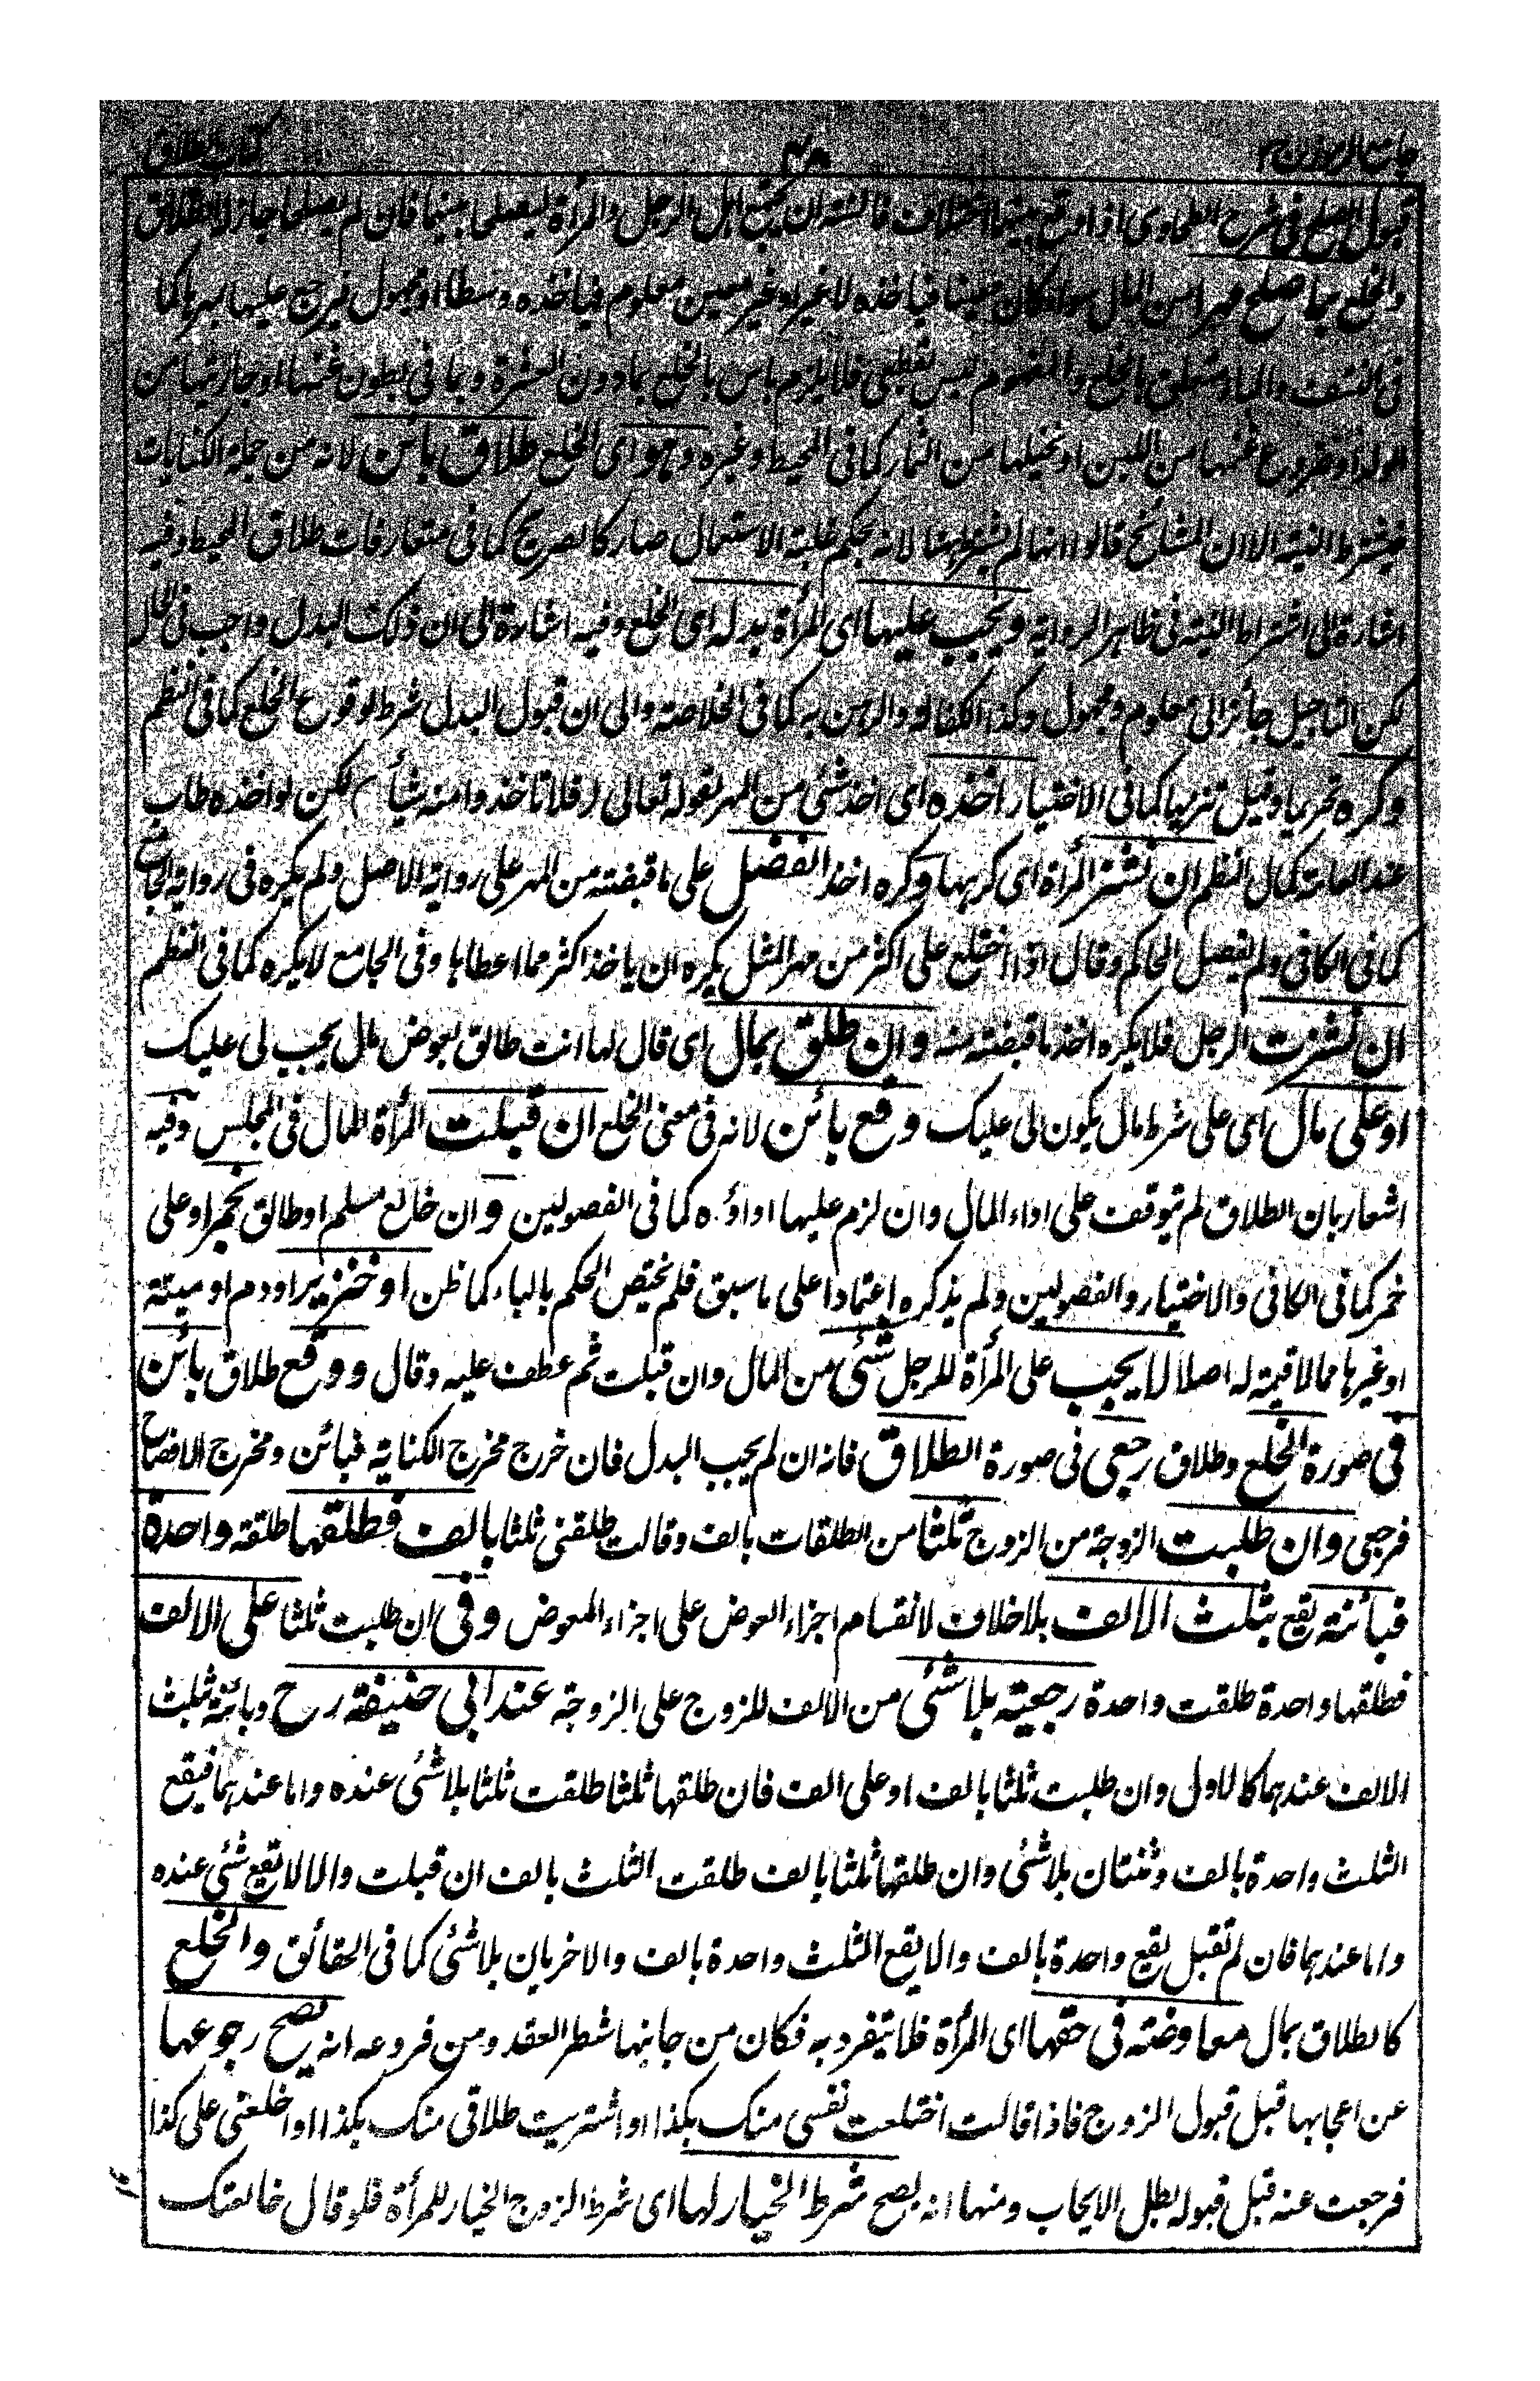 جامع الرموز ج ٢ كتاب الطلاق
قبول الصلح فى شرح الطحاوى اذا وقع بينهما اختلاف فالسنة ان يجتمع اهل الرجل والمرأة ليصلحا بينهما فان لم يصلحا جاز له الطلاق
والخلع بما صلح مهرا من المال سواء كان معينا فياخذه لا غير او غير معين معلوم فياخذه وسطا او مجهول فيرجع عليها بمهرها كما
فى النتف والماء متعلق بالخلع والمفهوم ليس بقطعى فلا يلزم باس بالخلع بما دون العشرة وبما فى بطون غنمها او جاريتها من
الولد او ضروع غنمها من اللبن او نخيلها من الثمار كما فى المحيط وغيره وهو اى الخلع طلاق بائن لانه من جملة الكنايات
فيشترط النية الا ان المشائخ قالوا انها لم تشترط هنا لانه بحكم غلبة الاستعمال صار كالصريح كما فى متعارفات طلاق المحيط وفيه
اشارة الى اشتراط النية فى ظاهر الرواية ويجب عليها اى المرأة بدله اى الخلع وفيه اشارة الى ان ذلك البدل واجب فى الحال
لكن التاجيل جائز الى معلوم ومجهول وكذا الكفالة والرهن به كما فى الخلاصة والى ان قبول البدل شرط لوقوع الخلع كما فى النظم
وكره تحريما وقيل تنزيها كما فى الاختيار اخذه اى اخذ شئ من المهر لقوله تعالى (فلا تاخذوا منه شيأ) لكن لو اخذه طاب
عند العامة كمال النظم ان نشز المرأة اى كرهها وكره اخذ الفضل على ما قبضته من المهر على رواية الاصل ولم يكره فى رواية الجامع
كما فى الكافى ولم يفصل الحاكم وقال اذا اختلع على اكثر من مهر المثل يكره ان ياخذ اكثر مما اعطاها وفى الجامع لا يكره كما فى النظم
ان نشزت الرجل فلا يكره اخذ ما قبضته منه وان طلق بمال اى قال لها انت طالق بعوض مال يجب لى عليك
او على مال اى على شرط مال يكون لى عليك وقع بائن لانه فى معنى الخلع ان قبلت المرأة المال فى المجلس وفيه
اشعار بان الطلاق لم يتوقف على اداء المال وان لزم عليها اداؤه كما فى الفصولين وان خالع مسلم او طالق بخمر او على
خمر كما فى الكافى والاختيار والفصولين ولم يذكره اعتمادا على ما سبق فلم يختص الحكم بالباء كما ظن او خنزير او دم او ميتة
او غيرها مما لا قيمة له اصلا لا يجب على المرأة للرجل شئ من المال وان قبلت ثم عطف عليه وقال ووقع طلاق بائن
فى صورة الخلع وطلاق رجعى فى صورة الطلاق فانه ان لم يجب البدل فان خرج مخرج الكناية فبائن ومخرج الافصاح
فرجعى وان طلبت الزوجة من الزوج ثلثا من الطلقات بالف وقالت طلقنى ثلثا بالف فطلقها طلقة واحدة
فبائنة يقع بثلث الالف بلا خلاف لانقسام اجزاء العوض على اجزاء المعوض وفى ان طلبت ثلثا على الالف
فطلقها واحدة طلقت واحدة رجعية بلا شئ من الالف للزوج على الزوجة عند ابى حنيفة رح وبائنة ثلث
الالف عندهما كالاول وان طلبت ثلثا بالف او على الف فان طلقها ثلثا طلقت ثلثا بلا شئ عنده واما عندهما فيقع
الثلث واحدة بالف وثنتان بلا شئ وان طلقها ثلثا بالف طلقت الثلث بالف ان قبلت والا لا يقع شئ عنده
واما عندهما فان لم تقبل يقع واحدة بالف والا يقع الثلث واحدة بالف والاخريان بلا شئ كما فى الحقائق والخلع
كالطلاق بمال معاوضة فى حقها اى المرأة فلا يتفرد به فكان من جانبها شطر العقد ومن فروعه انه يصح رجوعها
عن ايجابها قبل قبول الزوج فاذا قالت اختلعت نفسى منك بكذا او اشتريت طلاقى منك بكذا او اخلعنى على كذا
فرجعت عنه قبل قبوله بطل الايجاب ومنها انه يصح شرط الخيار لها اى شرط الزوج الخيار للمرأة فلو قال خالعتك